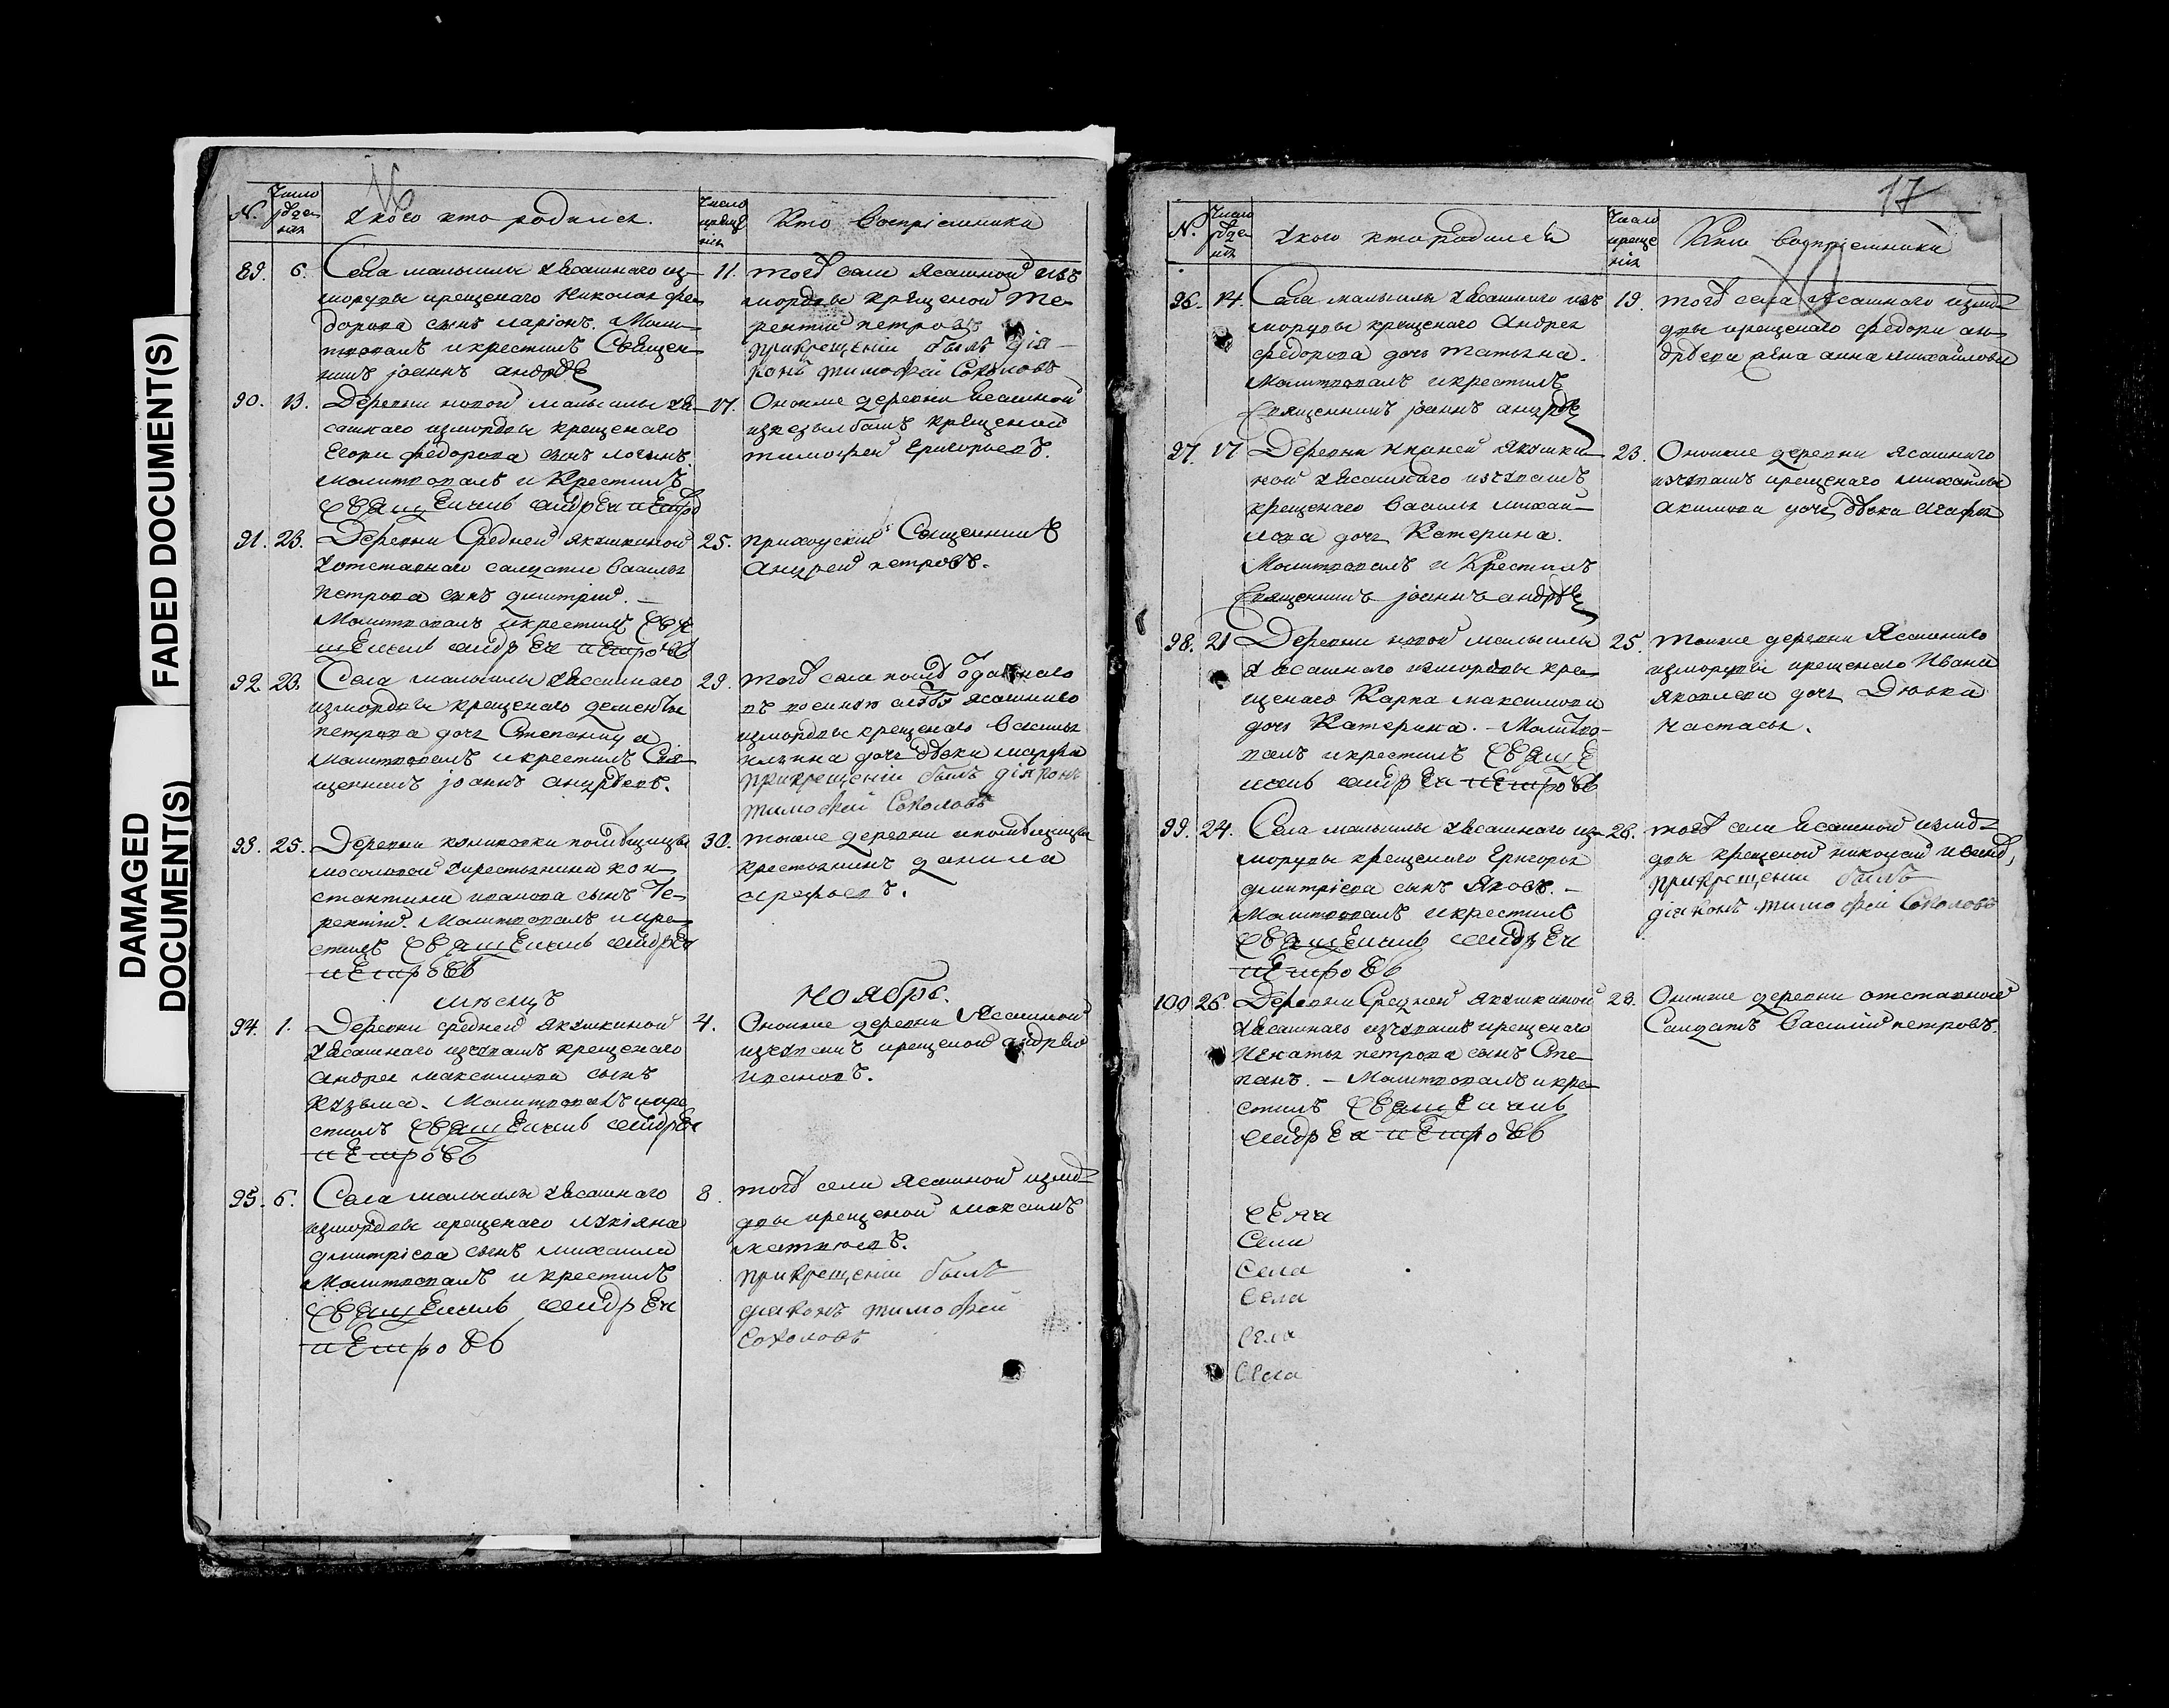 DAMAGED DOCUMENT(S)
FADED DOCUMENT(S)
16
N. Число рожде нія
У кого кто родился.
Число креще нія
Кто Воспріемники
89. 6. Села малыклы у ясашнаго из
мордвы крещенаго Николая фе
дорова сынъ ларіонъ. Моли
твовалъ и крестилъ Священ
никъ іоаннъ андрѣе
11. того села Ясашной изъ
мордвы крещеной Те
рентей петровъ
прикрещеніи былъ дія
конъ тимофей Соколовъ
90. 13. Деревни новой малыклы у я
сашнаго измордвы крещенаго
Егора федорова сынъ логинъ.
молитвовалъ и Крестилъ
Священникъ андрей петро
17. Оноиже деревни Ясашной
крещеной
тимофей Григорьевъ.
91. 23. Деревни Средней якушкиной
у отставнаго салдата василья
петрова сынъ димитрій.
Молитвовалъ и крестилъ Свя
щенникъ андрей петровъ
25. приходскій Священникъ
андрей петровъ.
92. 23. Села малыклы у ясашнаго
измордвы крещенаго дементья
петрова дочь Степанида
молитвовалъ и крестилъ Свя
щенникъ іоаннъ андрѣевъ.
29. того села
ясашнаго
измордвы крещенаго василья
ильина дочь дѣвка марфа
прикрещеніи былъ діяконъ
тимофей Соколовъ
93. 25. Деревни помѣщицы
у крестьянина кон
стантина иванова сынъ Те
рентій. Молитвовалъ и кре
стилъ Священникъ андрей
петровъ
30. тоиже деревни и помѣщицы
крестьянинъ данила
арефьевъ.
мѣсецъ
Ноябрь.
94. 1. Деревни средней якушкиной
у ясашнаго изчувашъ крещенаго
андрея максимова сынъ
кузьма. Молитвовалъ и кре
стилъ Священникъ андрей
петровъ
4. Оноиже деревни Ясашной
изчувашъ крещеной андрей
ивановъ.
95. 6. Села малыклы у ясашнаго
измордвы крещенаго лукіяна
дмитріева сынъ михаила
Молитвовалъ и крестилъ
Священникъ андрей
петровъ
8. того села ясашной измо
рдвы крещеной максимъ
матвѣевъ.
прикрещеніи былъ
діяконъ тимофей
Соколовъ
17
N. Число рожде нія
У кого кто родился
Число креще нія
Кто воспріемники
96. 14. Села малыклы у ясашнаго изъ
мордвы крещенаго Андрея
федорова дочь татьяна.
молитвовалъ и крестилъ
Священникъ іоаннъ андрѣе
19. того села Ясашнаго измо
рдвы крещенаго федора ан
дрѣева жена анна михайлова
97. 17 Деревни нижней якушки
ной у ясашнаго изчувашъ
крещенаго василья михай
лова дочь Катерина.
Молитвовалъ и Крестилъ
Священникъ іоаннъ андрѣе
23. Оноиже деревни ясашнаго
изчувашъ крещенаго михайлы
акимова дочь дѣвка агафья
98. 21 Деревни новой малыклы
у ясашнаго измордвы кре
щенаго Карпа максимова
дочь Катерина. – Молитво
валъ и крестилъ Свяще
никъ андрей петровъ
25. тоиже деревни Ясашнаго
измордвы крещенаго Ивана
яковлева дочь Дѣвка
настасья.
99. 24. Села малыклы у ясашнаго из
мордвы крещенаго Григорья
дмитріева сынъ Яковъ. –
Молитвовалъ и крестилъ
Священникъ андрей
петровъ
28. того села Ясашной измо
рдвы крещеной николай ивано,
прикрещеніи былъ
діяконъ тимофей Соколовъ
100 26. Деревни Средней якушкиной
у ясашнаго изчувашъ крещенаго
Игнатья петрова сынъ Сте
панъ. – Молитвовалъ и кре
стилъ Священникъ
андрей петровъ
28. Оноиже деревни отставной
Салдатъ василій петровъ.
Села
Села
Села
Села
Села
Села